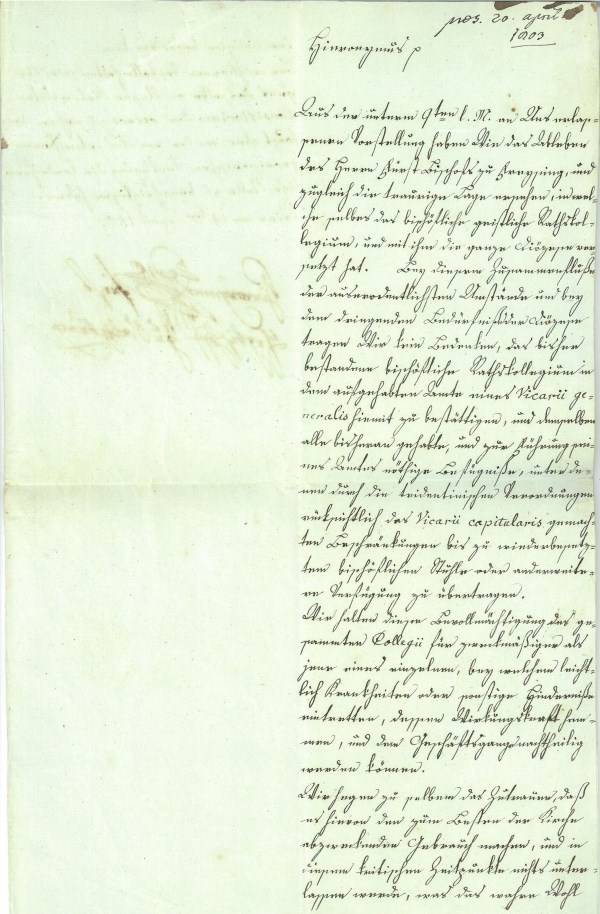 pres. 20. april
1803
Hieronymus p
Aus der unterm 9ten l. M. an Uns erlas-
senen Vorstellung haben Wir das Ableben
des Herrn Fürst Bischofs zu Freysing, und
zugleich die traurige Lage ersehen, in wel-
che selbes das bischöfliche geistliche Rathskol-
legium, und mit ihm die ganze Diözese ver-
setzt hat. Bey diesem Zusammenfluße
der auserodentlichsten Umstände und bey
dem dringenden Bedürfniß der Diözese
tragen Wir kein Bedenken, das bisher
bestandene bischöfliche Rathskollegium in
dem aufgehabten Amte eines Vicarii ge-
neralis hiemit zu bestättigen, und demselben
alle bisheran gehabte, und zur Führung sei-
nes Amtes nöthige Befugniße, unter de-
nen durch die tridentinischen Verordnungen
rücksichtlich des Vicarii capitularis gemach-
ten Beschränkungen bis zu wiederbesetz-
tem bischöflichen Stuhle oder anderweite-
re Verfügung zu übertragen.
Wir halten diese Bevollmächtigung des ge-
sammten Collegii für zweckmäßiger als
jene eines einzelnen, bey welchem leicht-
lich Krankheiten oder sonstige Hinderniße
eintretten, dessen Wirkungskraft hem-
men, und dem Geschäftsgange nachtheilig
werden können.
Wir hegen zu selbem das Zutrauen, daß
es hievon den zum Besten der Kirche
abzweckenden Gebrauch machen, und in
diesem kritischen Zeitpunkte nichts unter-
lassen werde, was das wahre Wohl